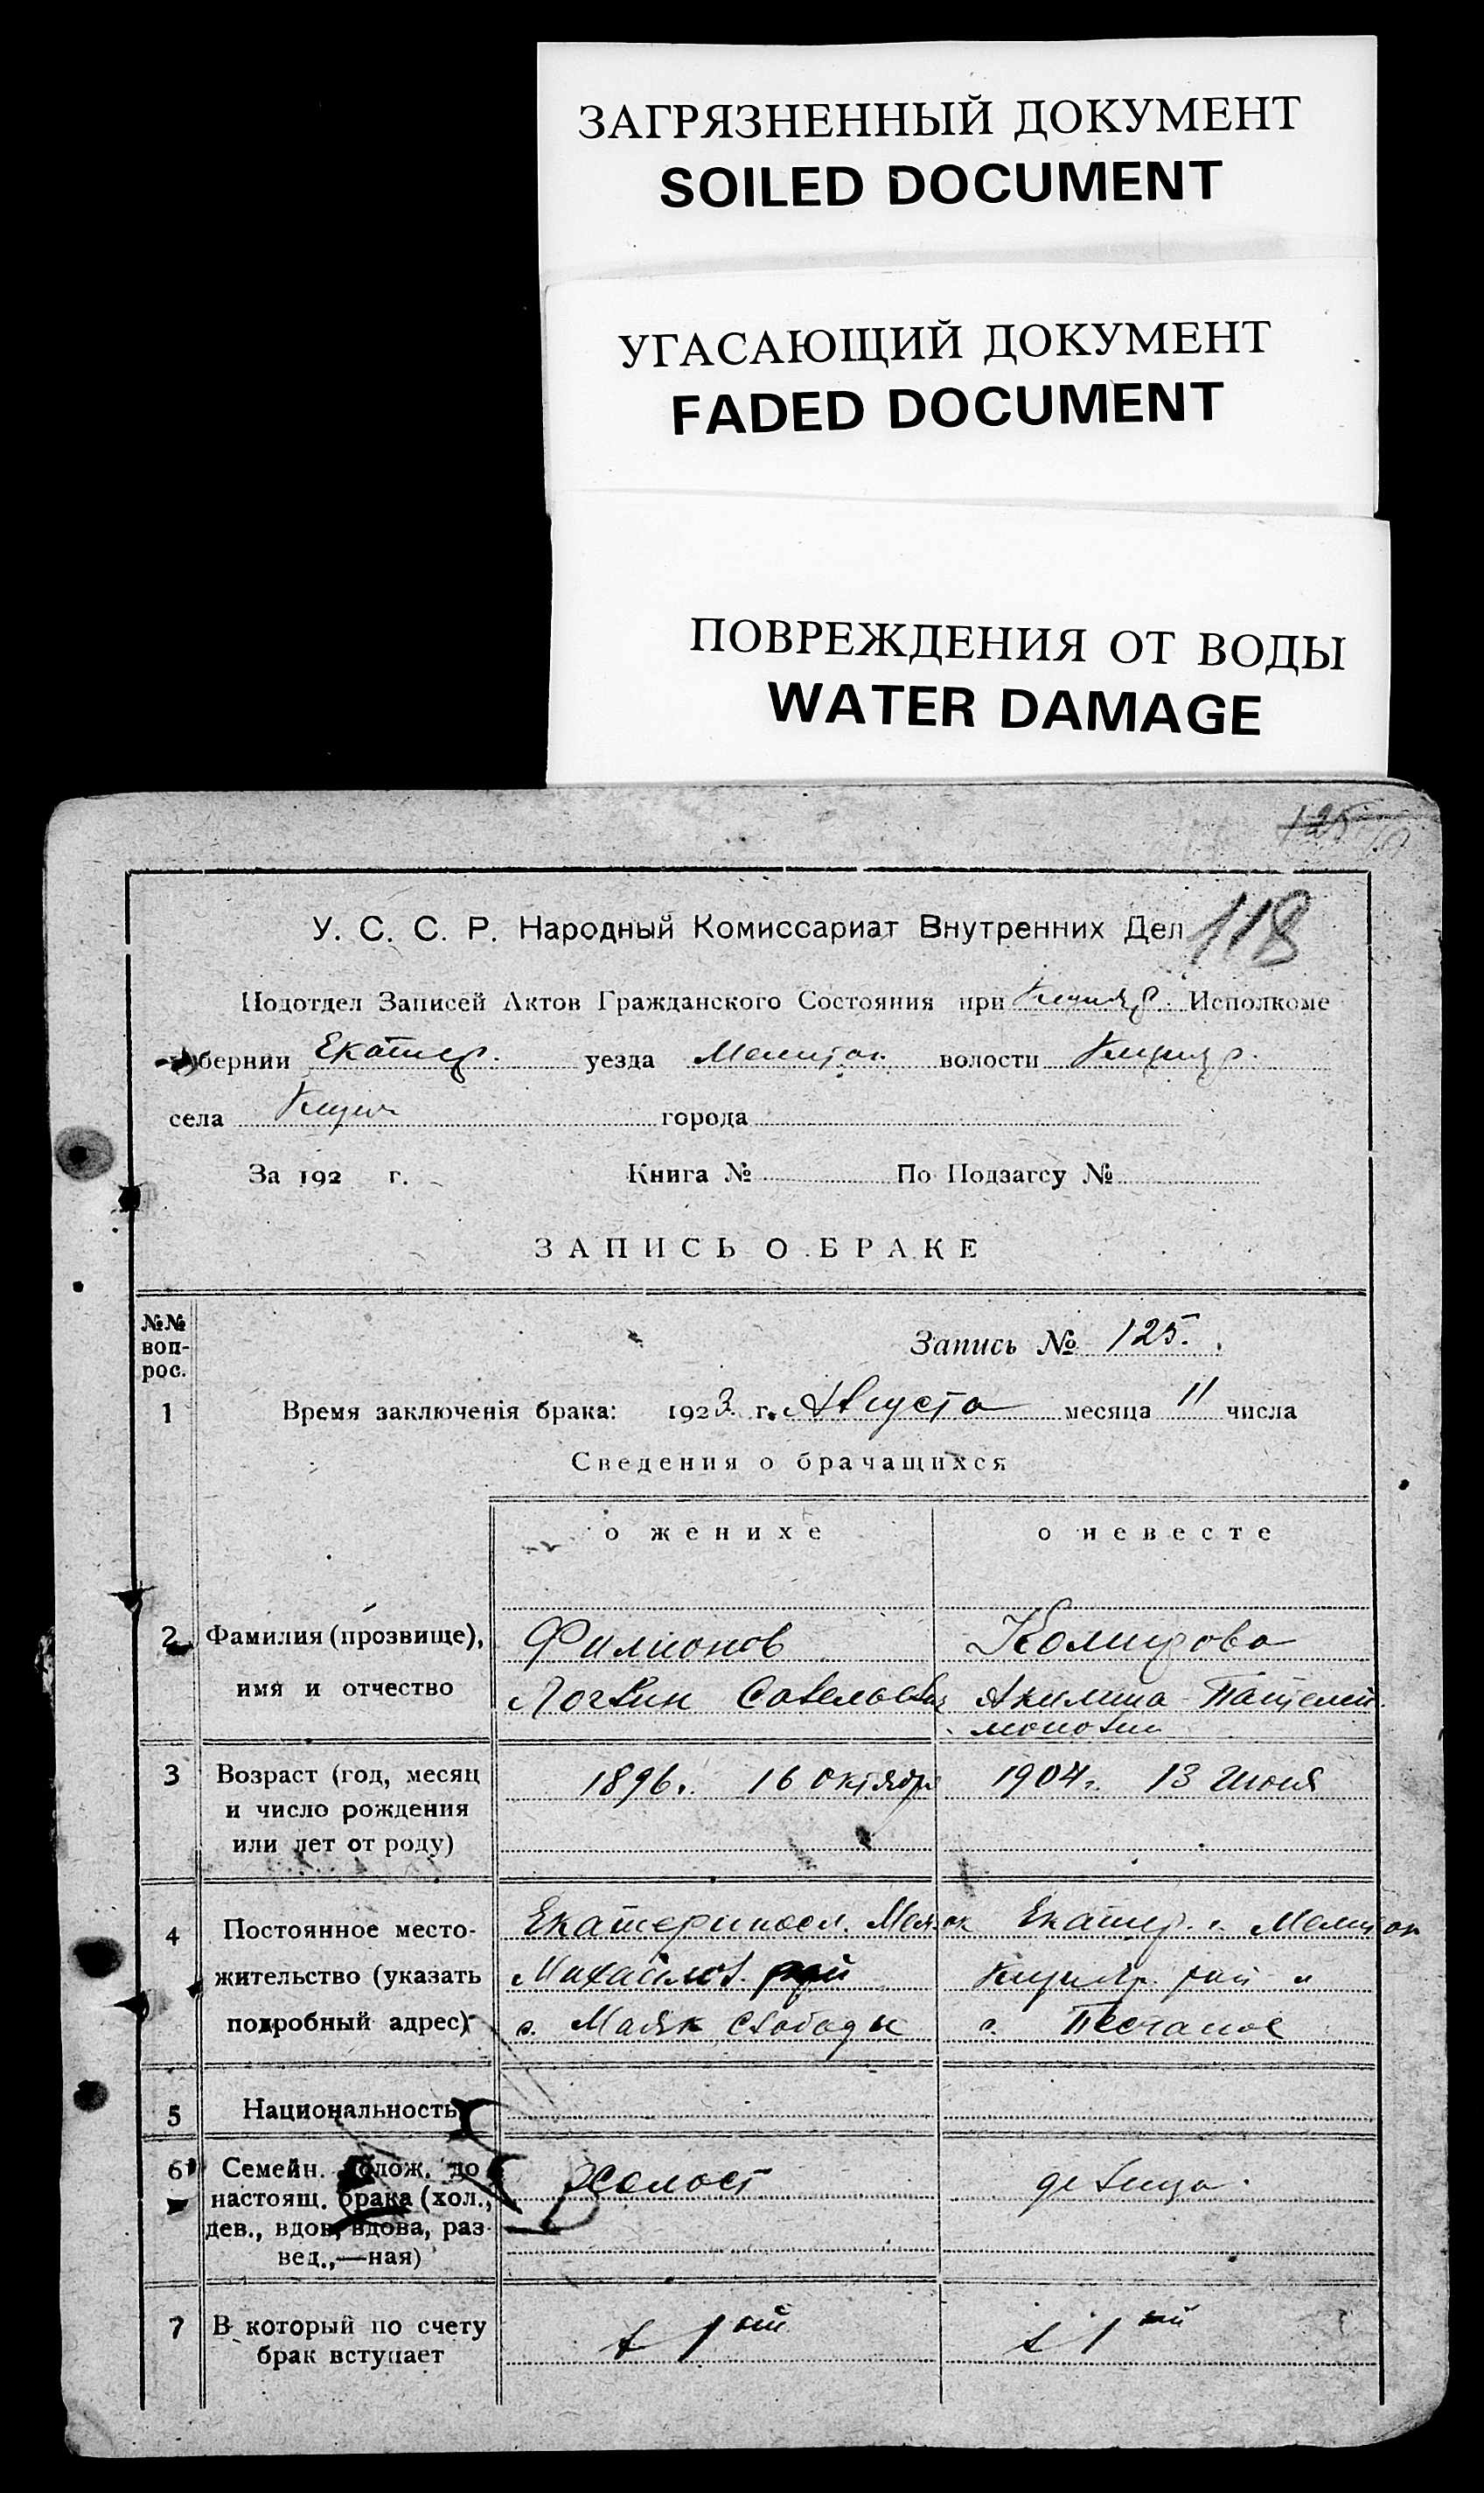 ЗАГРЯЗНЕННЫЙ ДОКУМЕНТ
SOILED DOCUMENT
УГАСАЮЩИЙ ДОКУМЕНТ
FADED DOCUMENT
ПОВРЕЖДЕНИЯ ОТ ВОДЫ
WATER DAMAGE
У. С. С. Р. Народный Комиссариат Внутренних Дел
118
Подотдел Записей Актов Гражданского Состояния при Исполкоме
бернии Екатер. уезда Мелитоп. волости
села города
За 192 г. Книга № По Подзагсу №
ЗАПИСЬ О БРАКЕ
№№ вопрос.
Запись № 125.
1 Время заключенія брака: 1923 г. Августа месяца 11 числа
Сведения о брачащихся
о женихе о невесте
2 Фамилия (прозвище), Филионов
имя и отчество Логвин Савельевич Акилина Пантелей
моновна
3 Возраст (год, месяц 1896г. 16 октября 1904г. 13 Июня
и число рождения
или лет от роду)
4 Постоянное место- Екатериносл. Мел-ок Екатер. г. Мелитоп
жительство (указать Михайлов. рай рай
подробный адрес) с. Маяк Свободы с. Песчаное
5 Национальность
6 Семейн. полож. до Холост девица
настоящ. брака (хол.,
дев., вдов, вдова, раз-
вед.,—ная)
7 В который по счету в 1ый в 1ый
брак вступает